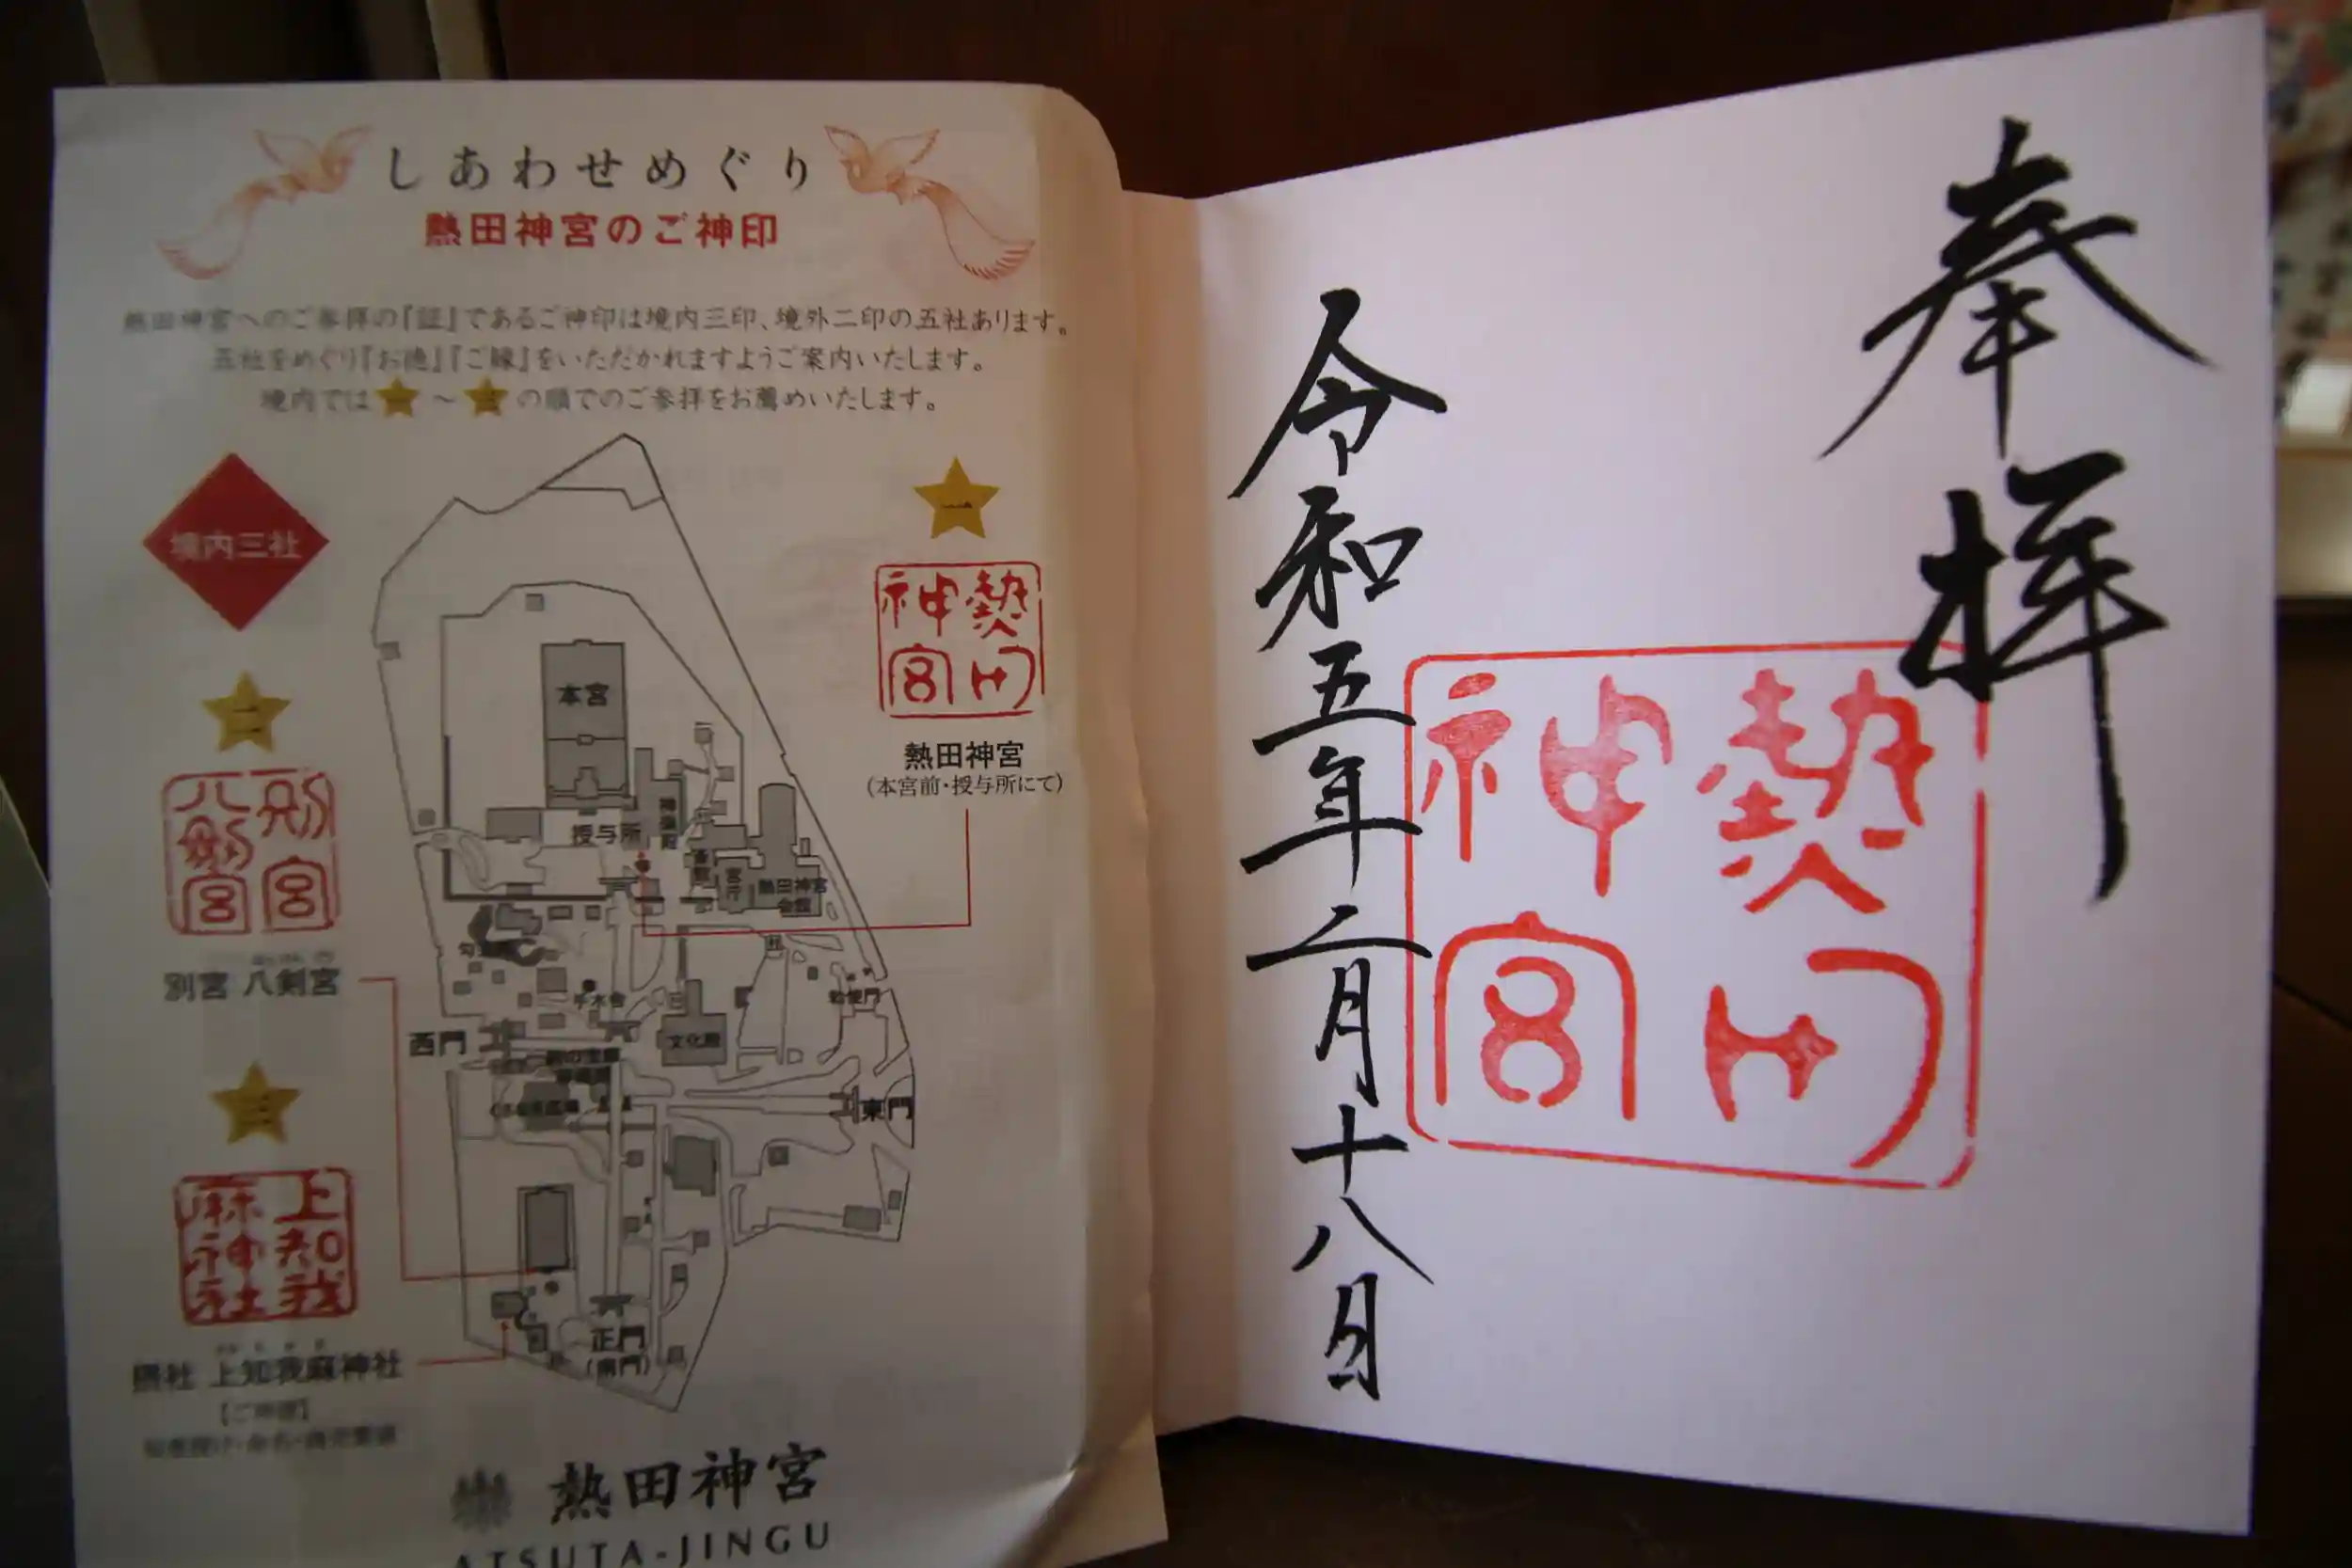 しあわせめぐり
熱田神宮のご神印
熱田神宮へのご参拝の『証』であるご神印は境内三印、境外二印の五社あります。
五社をめぐり『お徳』『ご縁』をいただかれますようご案内いたします。
境内では 一 ～ 三 の順でのご参拝をお薦めいたします。
境内三社
一
熱田
神宮
熱田神宮
(本宮前・授与所にて)
二
別宮
八剣宮
別宮 八剣宮
三
上知我
麻神社
摂社 上知我麻神社
【ご神徳】
本宮
授与所
神楽殿
宮庁
熱田神宮
会館
手水舎
勅使門
文化殿
西門
東門
正門
(南門)
熱田神宮
ATSUTA-JINGU
奉拝
熱田
神宮
令和五年二月十八日